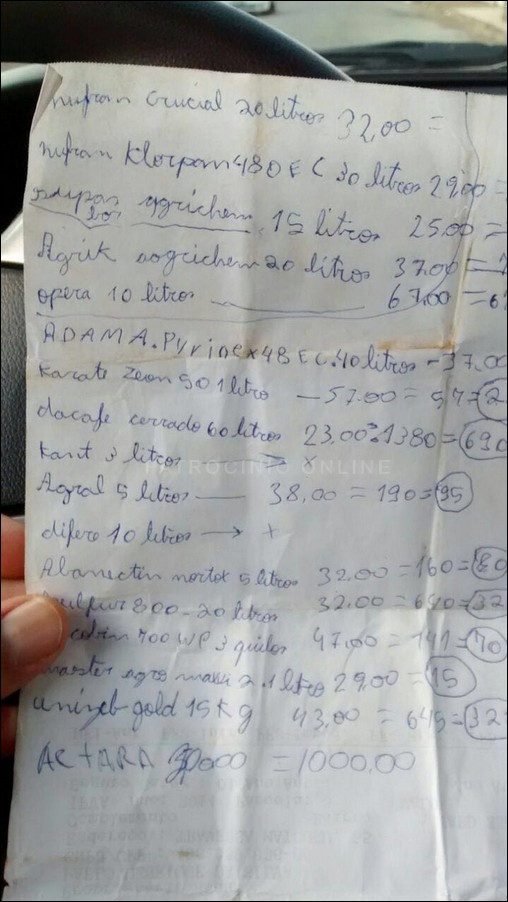 nufran Crucial 20 litros 32,00 =
nufran Klorpan 480 EC 30 litros 29,00 =
agrichem 15 litros 25,00 =
Agrik aogrichem 20 litros 37.00 =
opera 10 litros 67,00 = 6
ADAMA. Pyrinex 48 EC. 40 litros - 37,00
Karate Zeon 50 1 litro - 57.00 = 57 = 2
dacafe cerrado 60 litros 23.00 = 1380 = 690
Kant 3 litros
PATROCINIO ONLINE
Agral 5 litros 38,00 = 190 = 95
difere 10 litros → +
Abanectin nortox 5 litros 32.00 = 160 = 80
800 - 20 litros 32.00 = 640 = 32
700 WP 3 quilos 47,00 = 141 = 70
master agro 2.1 litro 29,00 = 15
unizeb gold 15 Kg 43,00 = 645 = 32
ACTARA = 1000,00